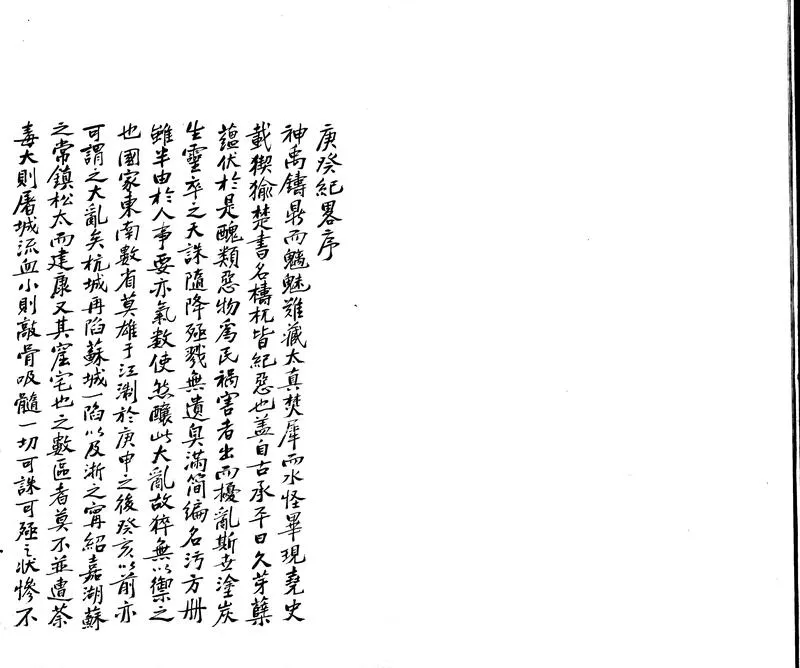 庚癸紀畧序
神禹鑄鼎而魑魅難藏太真焚犀而水怪畢現堯史
載猰㺄楚書名檮杌皆紀惡也蓋自古承平日久芽蘖
蘊伏於是醜類惡物為民禍害者出而擾亂斯世塗炭
生靈卒之天誅隨降殛戮無遺臭滿簡編名污方册
雖半由於人事要亦氣數使然釀此大亂故猝無以禦之
也國家東南數省莫雄于江浙於庚申之後癸亥以前亦
可謂之大亂矣杭城再陷蘇城一陷以及浙之甯紹嘉湖蘇
之常鎮松太而建康又其窟宅也之數區者莫不並遭荼
毒大則屠城流血小則敲骨吸髓一切可誅可殛之狀慘不